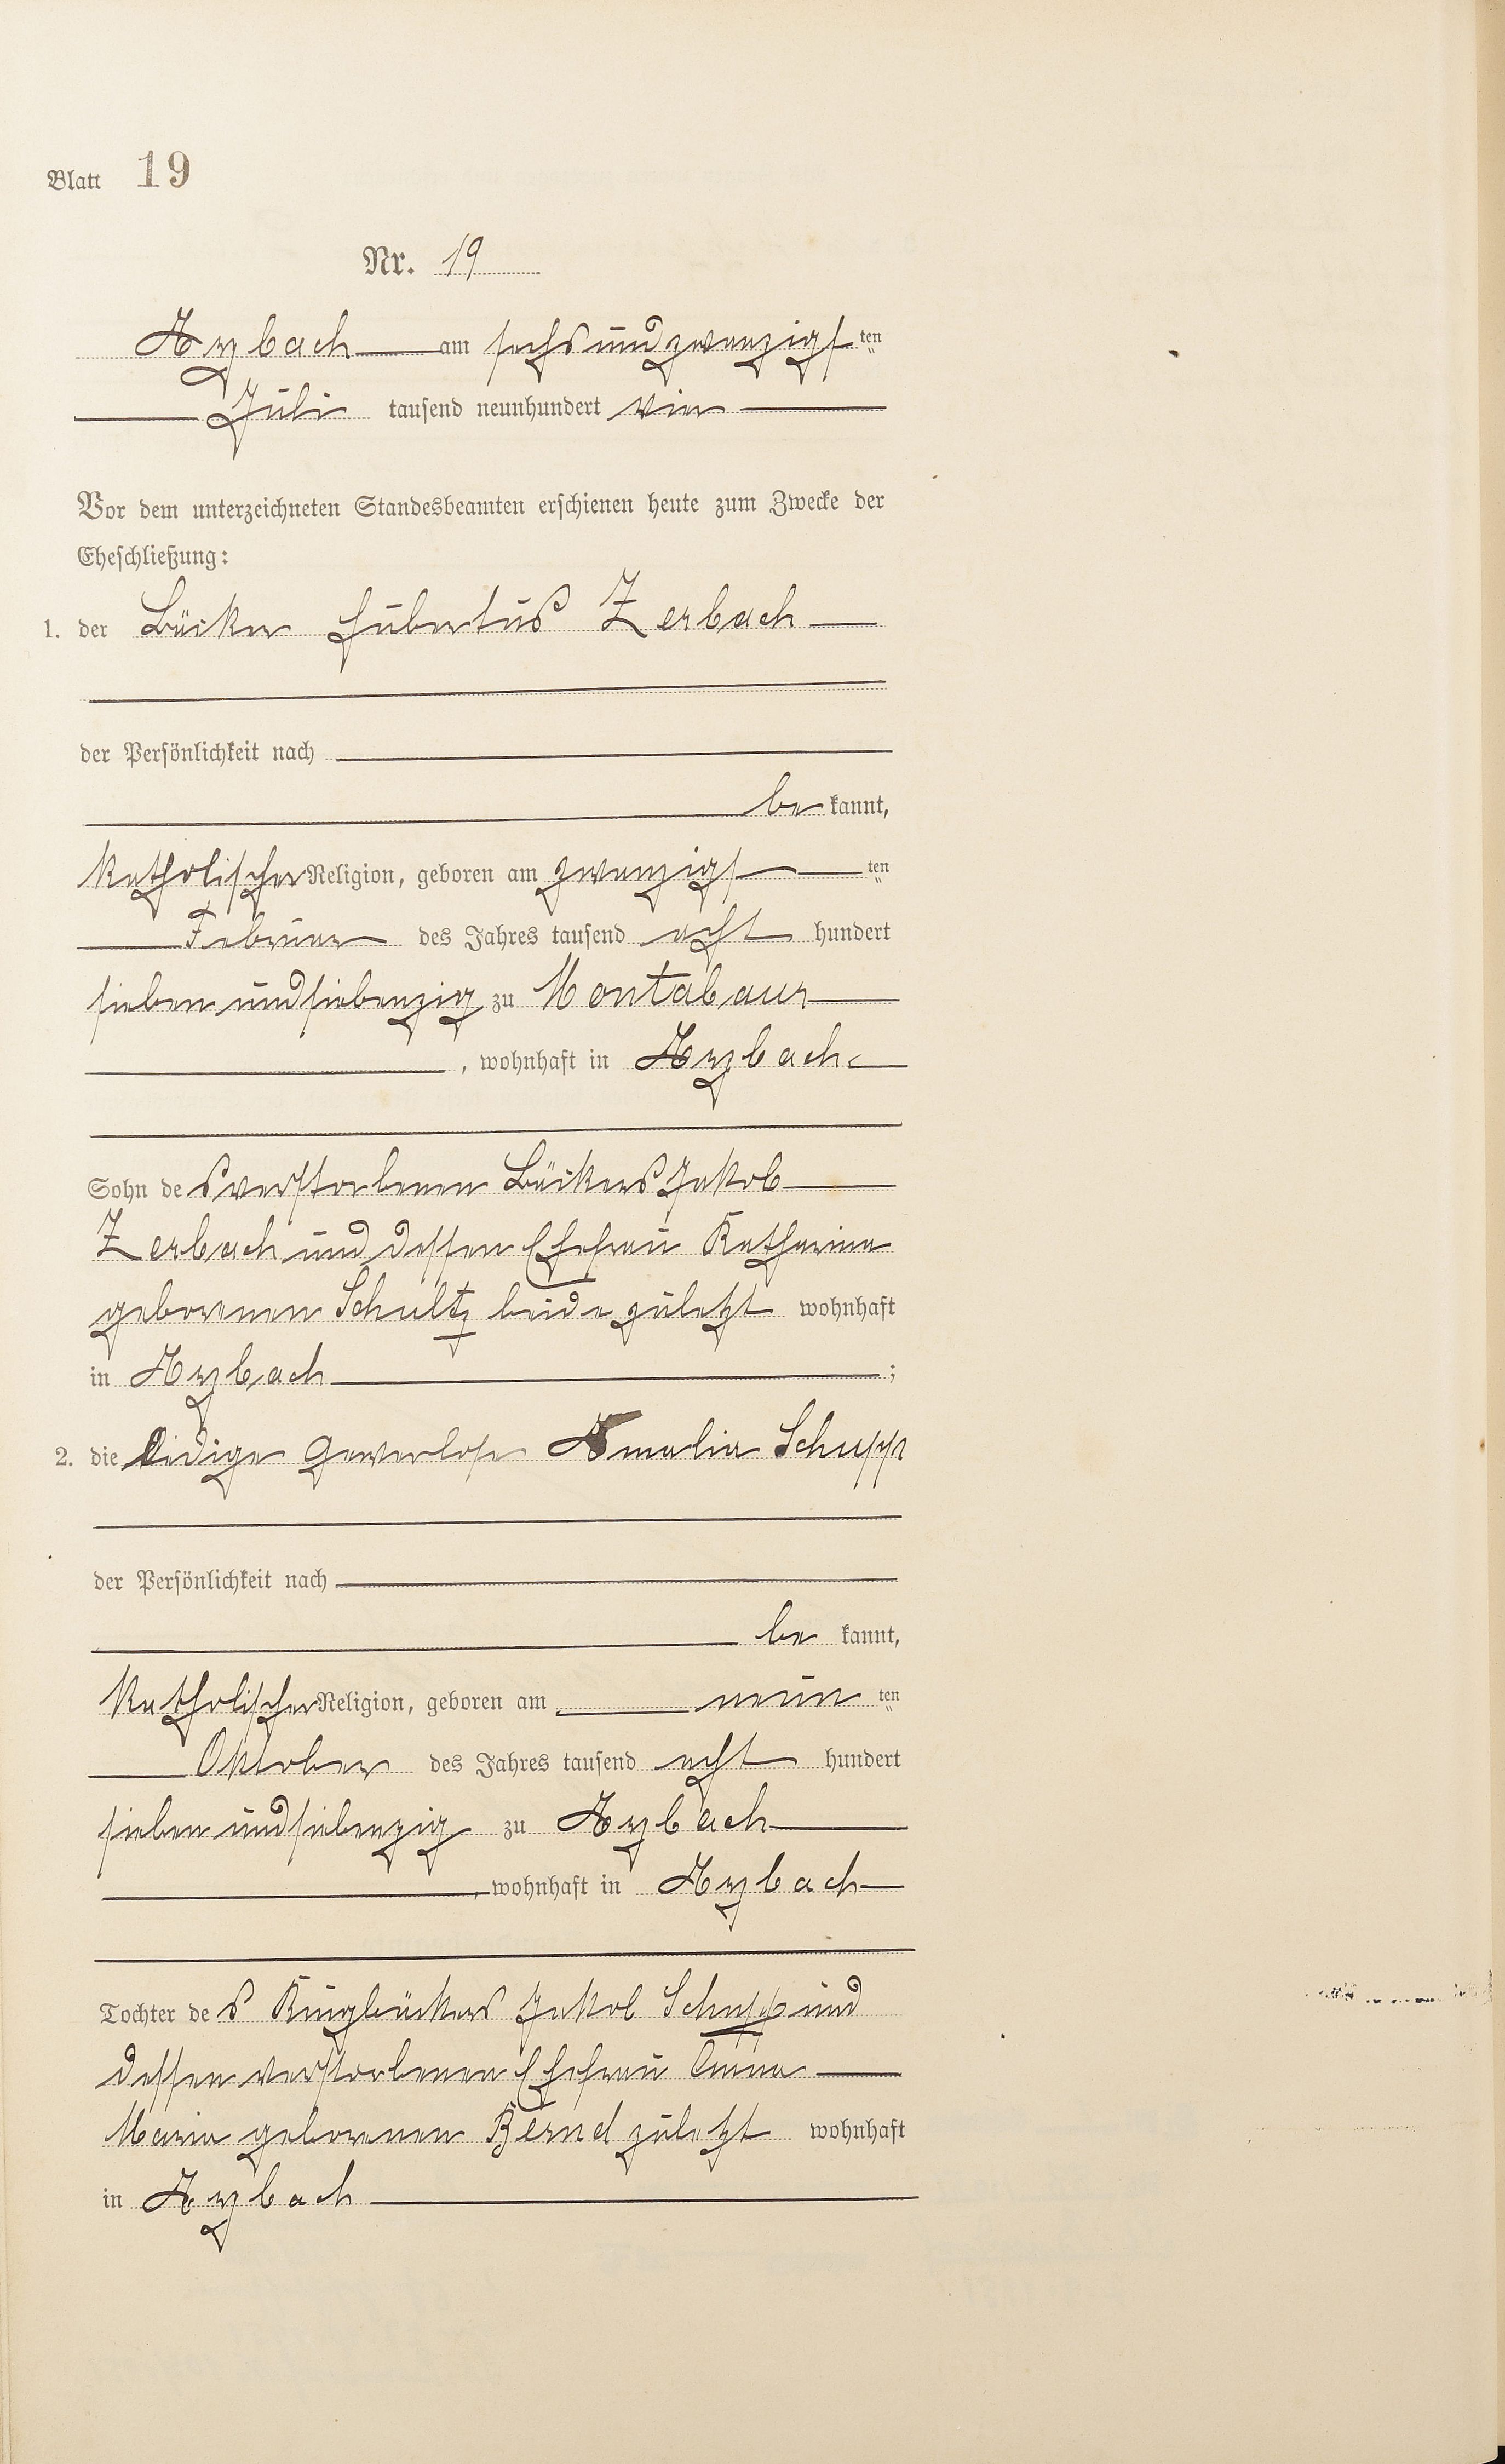 Blatt 19
Nr. 19
Arzbach am sechsundzwanzigsten
Juli tausend neunhundert vier
Vor dem unterzeichneten Standesbeamten erschienen heute zum Zwecke der
Eheschließung:
1. der Bäcker Hubertus Zerbach
der Persönlichkeit nach
bekannt,
katholischer Religion, geboren am zwanzigsten
Februar des Jahres tausend acht hundert
siebenundsiebenzig zu Montabaur
, wohnhaft in Arzbach
Sohn des verstorbenen Bäckers Jakob
Zerbach und dessen Ehefrau Katharina
geborenen Schultz beide zuletzt wohnhaft
in Arzbach ;
2. die ledige Gewerlose Amalia Schupp
der Persönlichkeit nach
bekannt,
katholischer Religion, geboren am neunten
Oktober des Jahres tausend acht hundert
siebenundsiebenzig zu Arzbach
, wohnhaft in Arzbach
Tochter des Jakob Schupp und
dessen verstorbenen Ehefrau Anna
Maria geborenen Bernd zuletzt wohnhaft
in Arzbach